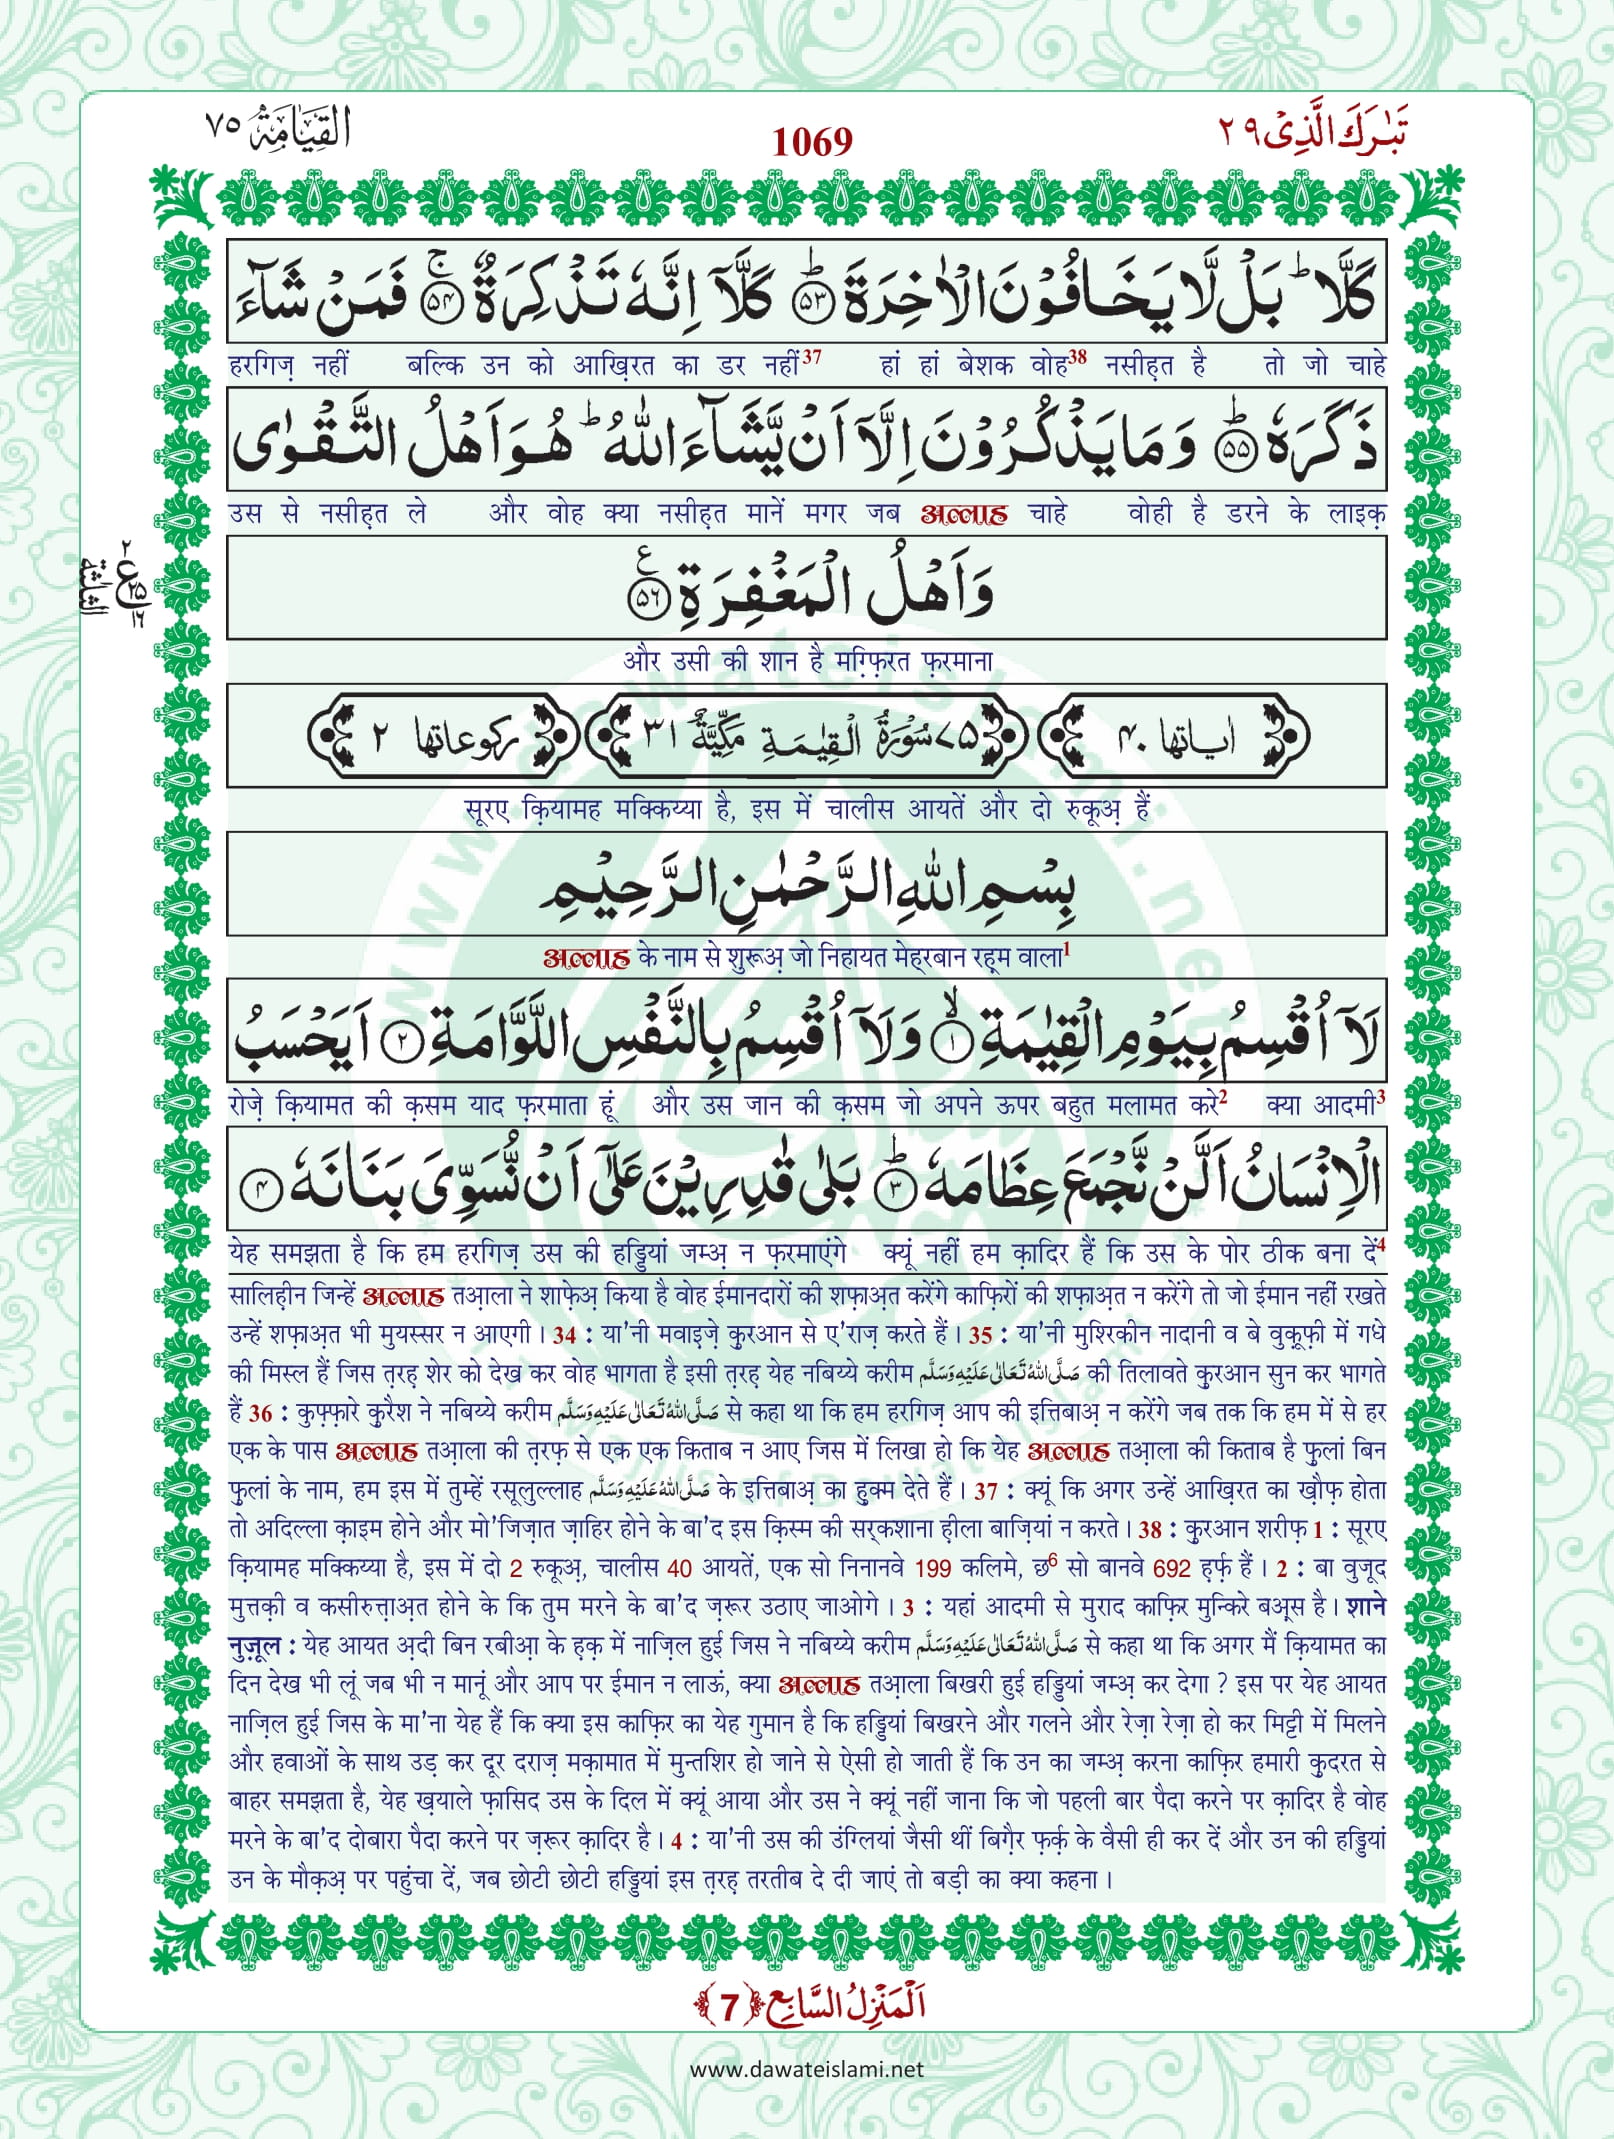 تَبٰرَكَ الَّذِیْ ٢٩
1069
القِيَامَة ٧٥
كَلَّاؕ بَلْ لَّا يَخَافُوْنَ الْاٰخِرَةَؕ ۵۳ كَلَّاۤ اِنَّهٗ تَذْكِرَةٌۚ ۵۴ فَمَنْ شَآءَ
हरगिज़ नहीं बल्कि उन को आख़िरत का डर नहीं37 हां हां बेशक वोह38 नसीह़त है तो जो चाहे
ذَكَرَهٗؕ ۵۵ وَ مَا يَذْكُرُوْنَ اِلَّاۤ اَنْ يَّشَآءَ اللّٰهُؕ هُوَ اَهْلُ التَّقْوٰى
उस से नसीह़त ले और वोह क्या नसीह़त मानें मगर जब अल्लाह चाहे वोही है डरने के लाइक़
وَ اَهْلُ الْمَغْفِرَةِ ۵۶ ع
और उसी की शान है मग़्फ़िरत फ़रमाना
اٰياتها ۴۰ ۷۵ سُوْرَةُ الْقِيٰمَةِ مَكِّيَّةٌ ۳۱ ركوعاتها ۲
सूरए क़ियामह मक्किय्या है, इस में चालीस आयतें और दो रुकूअ़ हैं
بِسْمِ اللّٰهِ الرَّحْمٰنِ الرَّحِيْمِ
अल्लाह के नाम से शुरूअ़ जो निहायत मेह्‌रबान रह़्म वाला1
لَاۤ اُقْسِمُ بِيَوْمِ الْقِيٰمَةِۙ ۱ وَ لَاۤ اُقْسِمُ بِالنَّفْسِ اللَّوَّامَةِ ۲ اَيَحْسَبُ
रोज़े क़ियामत की क़सम याद फ़रमाता हूं और उस जान की क़सम जो अपने ऊपर बहुत मलामत करे2 क्या आदमी3
الْاِنْسَانُ اَلَّنْ نَّجْمَعَ عِظَامَهٗؕ ۳ بَلٰى قٰدِرِيْنَ عَلٰۤى اَنْ نُّسَوِّىَ بَنَانَهٗ ۴
येह समझता है कि हम हरगिज़ उस की हड्डियां जम्अ़ न फ़रमाएंगे क्यूं नहीं हम क़ादिर हैं कि उस के पोर ठीक बना दें4
सालिह़ीन जिन्हें अल्लाह तआ़ला ने शाफे़अ़ किया है वोह ईमानदारों की शफ़ाअ़त करेंगे काफ़िरों की शफ़ाअ़त न करेंगे तो जो ईमान नहीं रखते
उन्हें शफ़ाअ़त भी मुयस्सर न आएगी । 34 : या'नी मवाइज़े़ क़ुरआन से ए'राज़ करते हैं । 35 : या'नी मुश्रिकीन नादानी व बे वुक़ूफ़ी में गधे
की मिस्ल हैं जिस त़रह़ शेर को देख कर वोह भागता है इसी त़रह़ येह नबिय्ये करीम صَلَّى اللّٰهُ تَعَالٰى عَلَيْهِ وَسَلَّم की तिलावते क़ुरआन सुन कर भागते
हैं 36 : कुफ़्फ़ारे क़ुरैश ने नबिय्ये करीम صَلَّى اللّٰهُ تَعَالٰى عَلَيْهِ وَسَلَّم से कहा था कि हम हरगिज़ आप की इत्तिबाअ़ न करेंगे जब तक कि हम में से हर
एक के पास अल्लाह तआ़ला की त़रफ़ से एक एक किताब न आए जिस में लिखा हो कि येह अल्लाह तआ़ला की किताब है फ़ुलां बिन
फ़ुलां के नाम, हम इस में तुम्हें रसूलुल्लाह صَلَّى اللّٰهُ عَلَيْهِ وَسَلَّم के इत्तिबाअ़ का हुक्म देते हैं । 37 : क्यूं कि अगर उन्हें आख़िरत का ख़ौफ़ होता
तो अदिल्ला क़ाइम होने और मो'जिज़ात ज़ाहिर होने के बा'द इस क़िस्म की सर्कशाना ह़ीला बाज़ियां न करते । 38 : क़ुरआन शरीफ़ 1 : सूरए
क़ियामह मक्किय्या है, इस में दो 2 रुकूअ़, चालीस 40 आयतें, एक सो निनानवे 199 कलिमे, छ6 सो बानवे 692 ह़र्फ़ हैं । 2 : बा वुजूद
मुत्तक़ी व कसीरुत्ता़अ़त होने के कि तुम मरने के बा'द ज़रूर उठाए जाओगे । 3 : यहां आदमी से मुराद काफ़िर मुन्किरे बअ़्स है । शाने
नुज़ूल : येह आयत अ़दी बिन रबीआ़ के ह़क़ में नाज़िल हुई जिस ने नबिय्ये करीम صَلَّى اللّٰهُ تَعَالٰى عَلَيْهِ وَسَلَّم से कहा था कि अगर मैं क़ियामत का
दिन देख भी लूं जब भी न मानूं और आप पर ईमान न लाऊं, क्या अल्लाह तआ़ला बिखरी हुई हड्डियां जम्अ़ कर देगा ? इस पर येह आयत
नाज़िल हुई जिस के मा'ना येह हैं कि क्या इस काफ़िर का येह गुमान है कि हड्डियां बिखरने और गलने और रेज़ा रेज़ा हो कर मिट्टी में मिलने
और हवाओं के साथ उड़ कर दूर दराज़ मक़ामात में मुन्तशिर हो जाने से ऐसी हो जाती हैं कि उन का जम्अ़ करना काफ़िर हमारी क़ुदरत से
बाहर समझता है, येह ख़याले फ़ासिद उस के दिल में क्यूं आया और उस ने क्यूं नहीं जाना कि जो पहली बार पैदा करने पर क़ादिर है वोह
मरने के बा'द दोबारा पैदा करने पर ज़रूर क़ादिर है । 4 : या'नी उस की उंग्लियां जैसी थीं बिग़ैर फ़र्क़ के वैसी ही कर दें और उन की हड्डियां
उन के मौक़अ़ पर पहुंचा दें, जब छोटी छोटी हड्डियां इस त़रह़ तरतीब दे दी जाएं तो बड़ी का क्या कहना ।
اَلْمَنْزِلُ السَّابِع ﴿7﴾
www.dawateislami.net